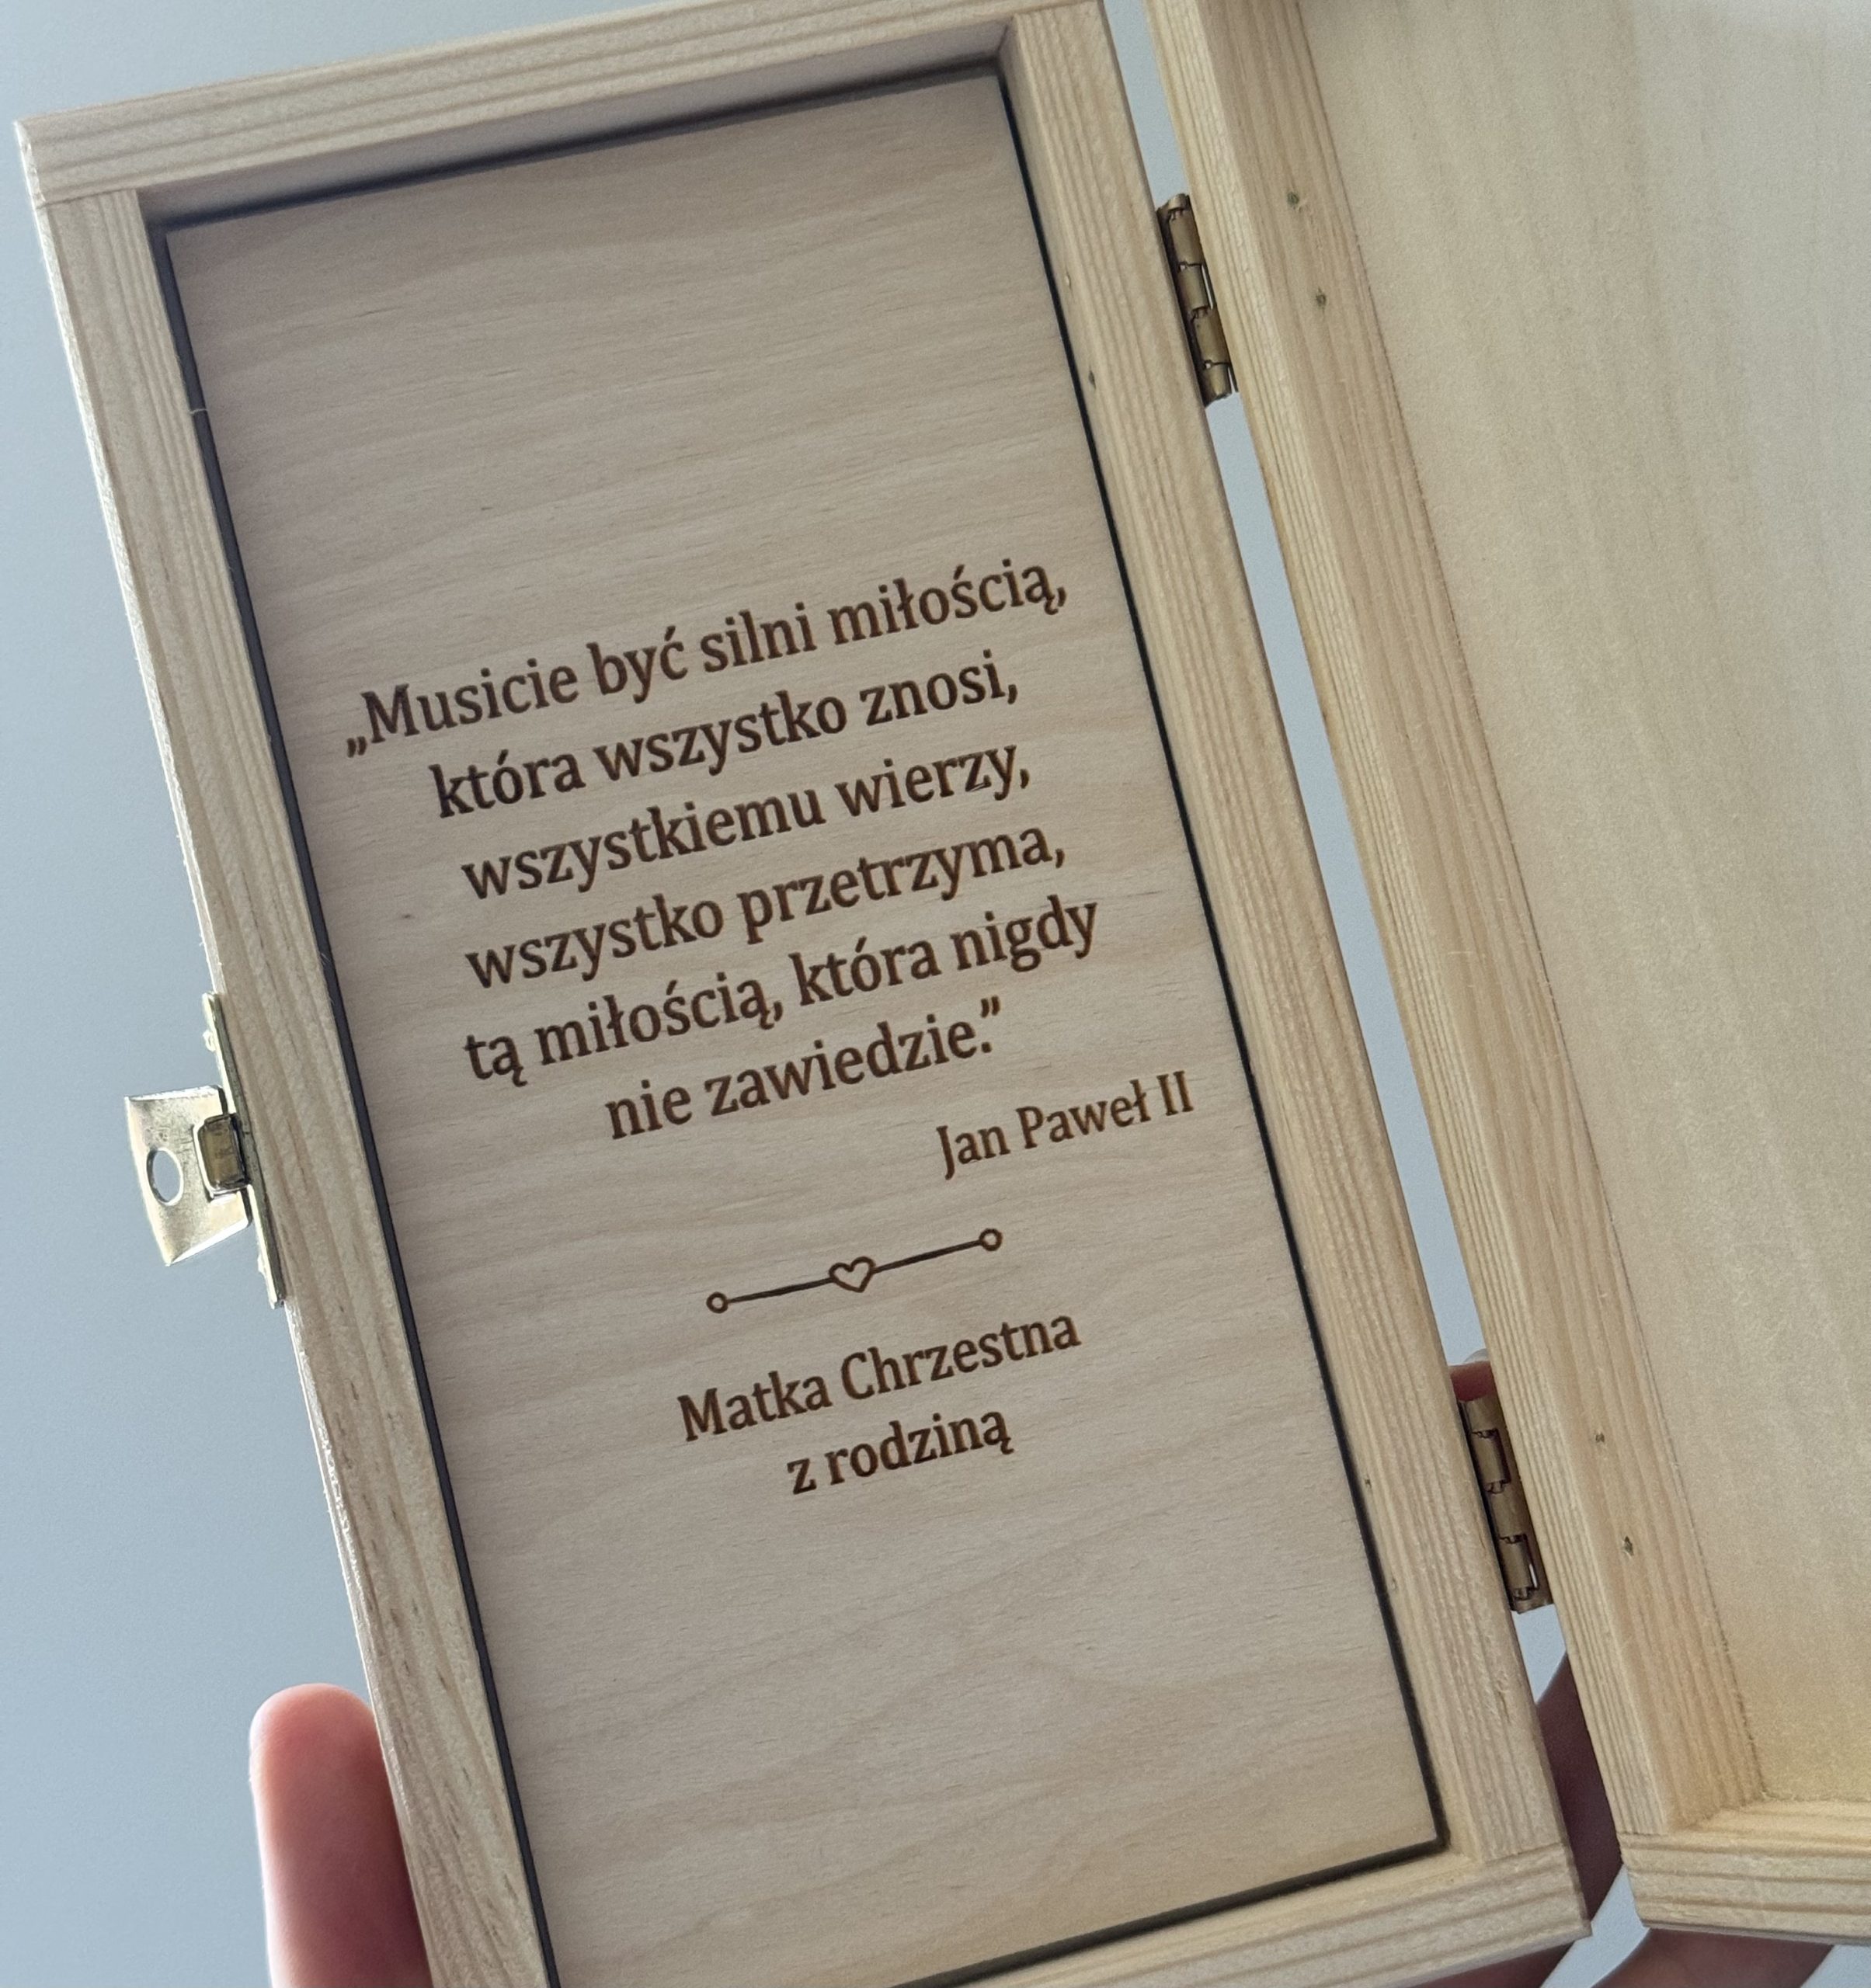 „Musicie być silni miłością,
która wszystko znosi,
wszystkiemu wierzy,
wszystko przetrzyma,
tą miłością, która nigdy
nie zawiedzie.”
Jan Paweł II
Matka Chrzestna
z rodziną